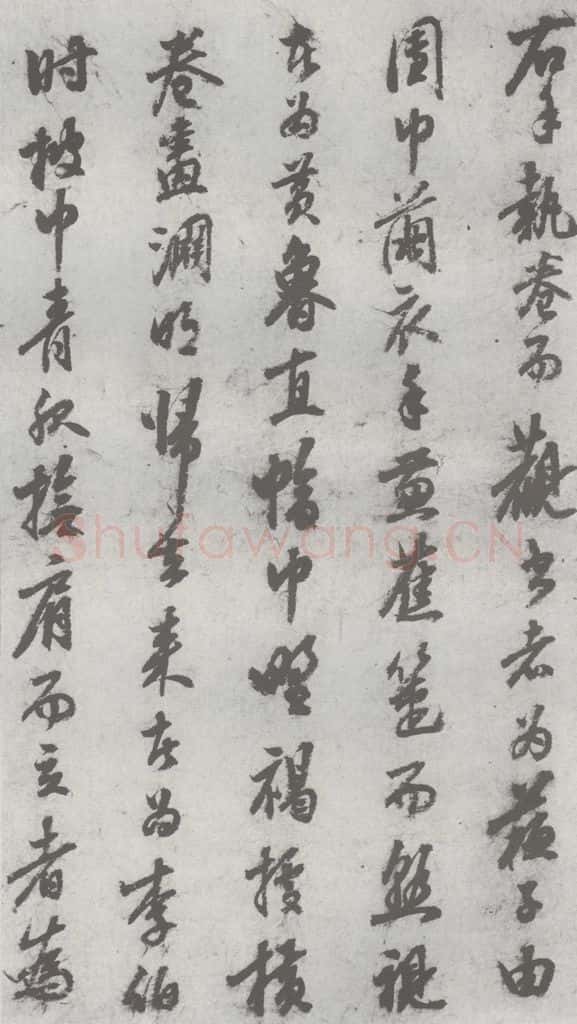 右手執卷而觀書者為蘇子由
團巾繭衣手秉蕉箑而熟視
者為黃魯直幅巾野褐據橫
卷畫淵明歸去來者為李伯
時披巾青服撫肩而立者為
Shufawang.CN